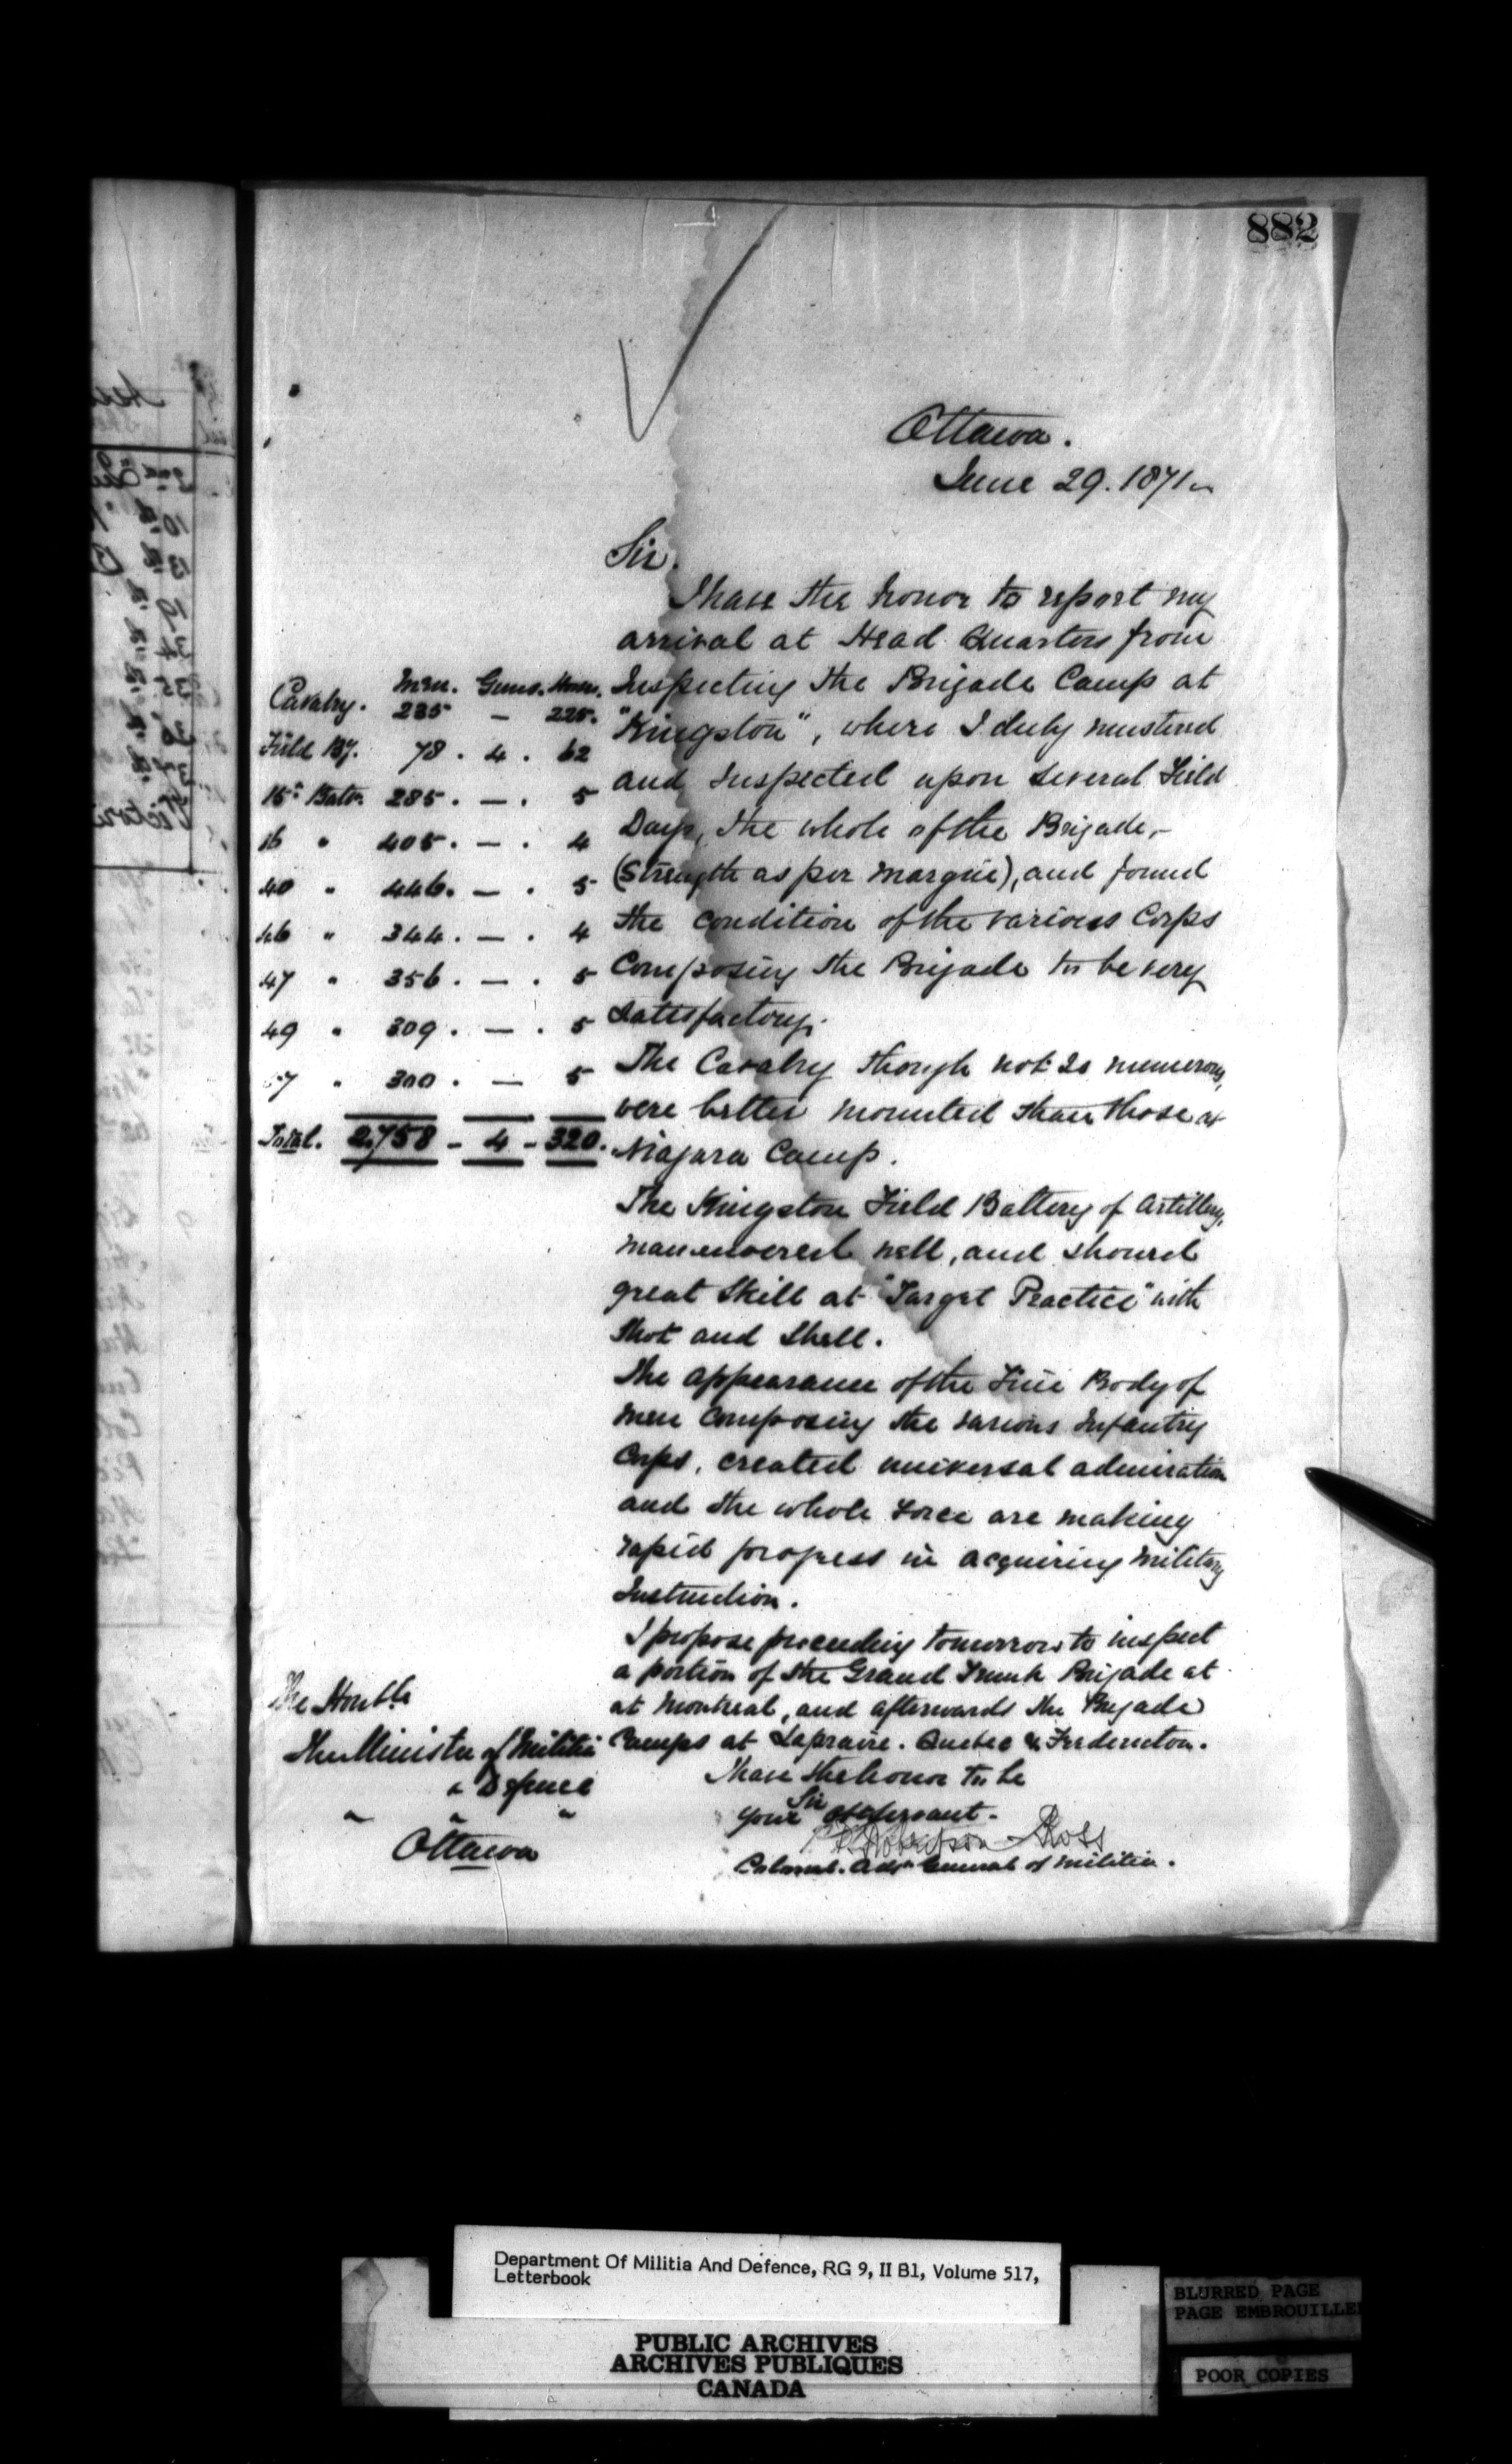 882
Ottawa.
June 29. 1871
Sir.
I have the honor to report my
arrival at Head Quarters from
Inspecting the Brigade Camp at
"Kingston", where I duly mustered
and Inspected upon several Field
Days, the whole of the Brigade,-
(Strength as per margin), and found
the condition of the various Corps
Composing the Brigade to be very
satisfactory.
The Cavalry though not so numerous,
were better mounted than those at
Niagara Camp.
The Kingston Field Battery of Artillery,
manuevered well, and showed
great skill at "Target Practice" with
Shot and Shell.
The appearance of the Fine Body of
men composing the various Infantry
Corps, created universal admiration
and the whole Force are making
rapid progress in acquiring military
Instruction.
I propose proceeding tomorrow to inspect
a portion of the Grand Trunk Brigade at
at Montreal, and afterwards the Brigade
Camps at Laprairie. Quebec & Fredericton.
I have the honor to be
Sir
your obt servant.
P. Robertson Ross
Colonel. Adjt General of Militia.
Men. Guns. Horses.
Cavalry. 235 — 225.
Field By. 78 . 4 . 62
15th Batn. 285 . — . 5
16 " 405 . — . 4
40 " 446 . — . 5
46 " 344 . — . 4
47 " 356 . — . 5
49 " 309 . — . 5
57 " 300 . — 5
Total. 2,758 - 4 - 320.
The Honble
The Minister of Militia
& Defence
" " "
Ottawa
Department Of Militia And Defence, RG 9, II B1, Volume 517,
Letterbook
PUBLIC ARCHIVES
ARCHIVES PUBLIQUES
CANADA
BLURRED PAGE
PAGE EMBROUILLE
POOR COPIES